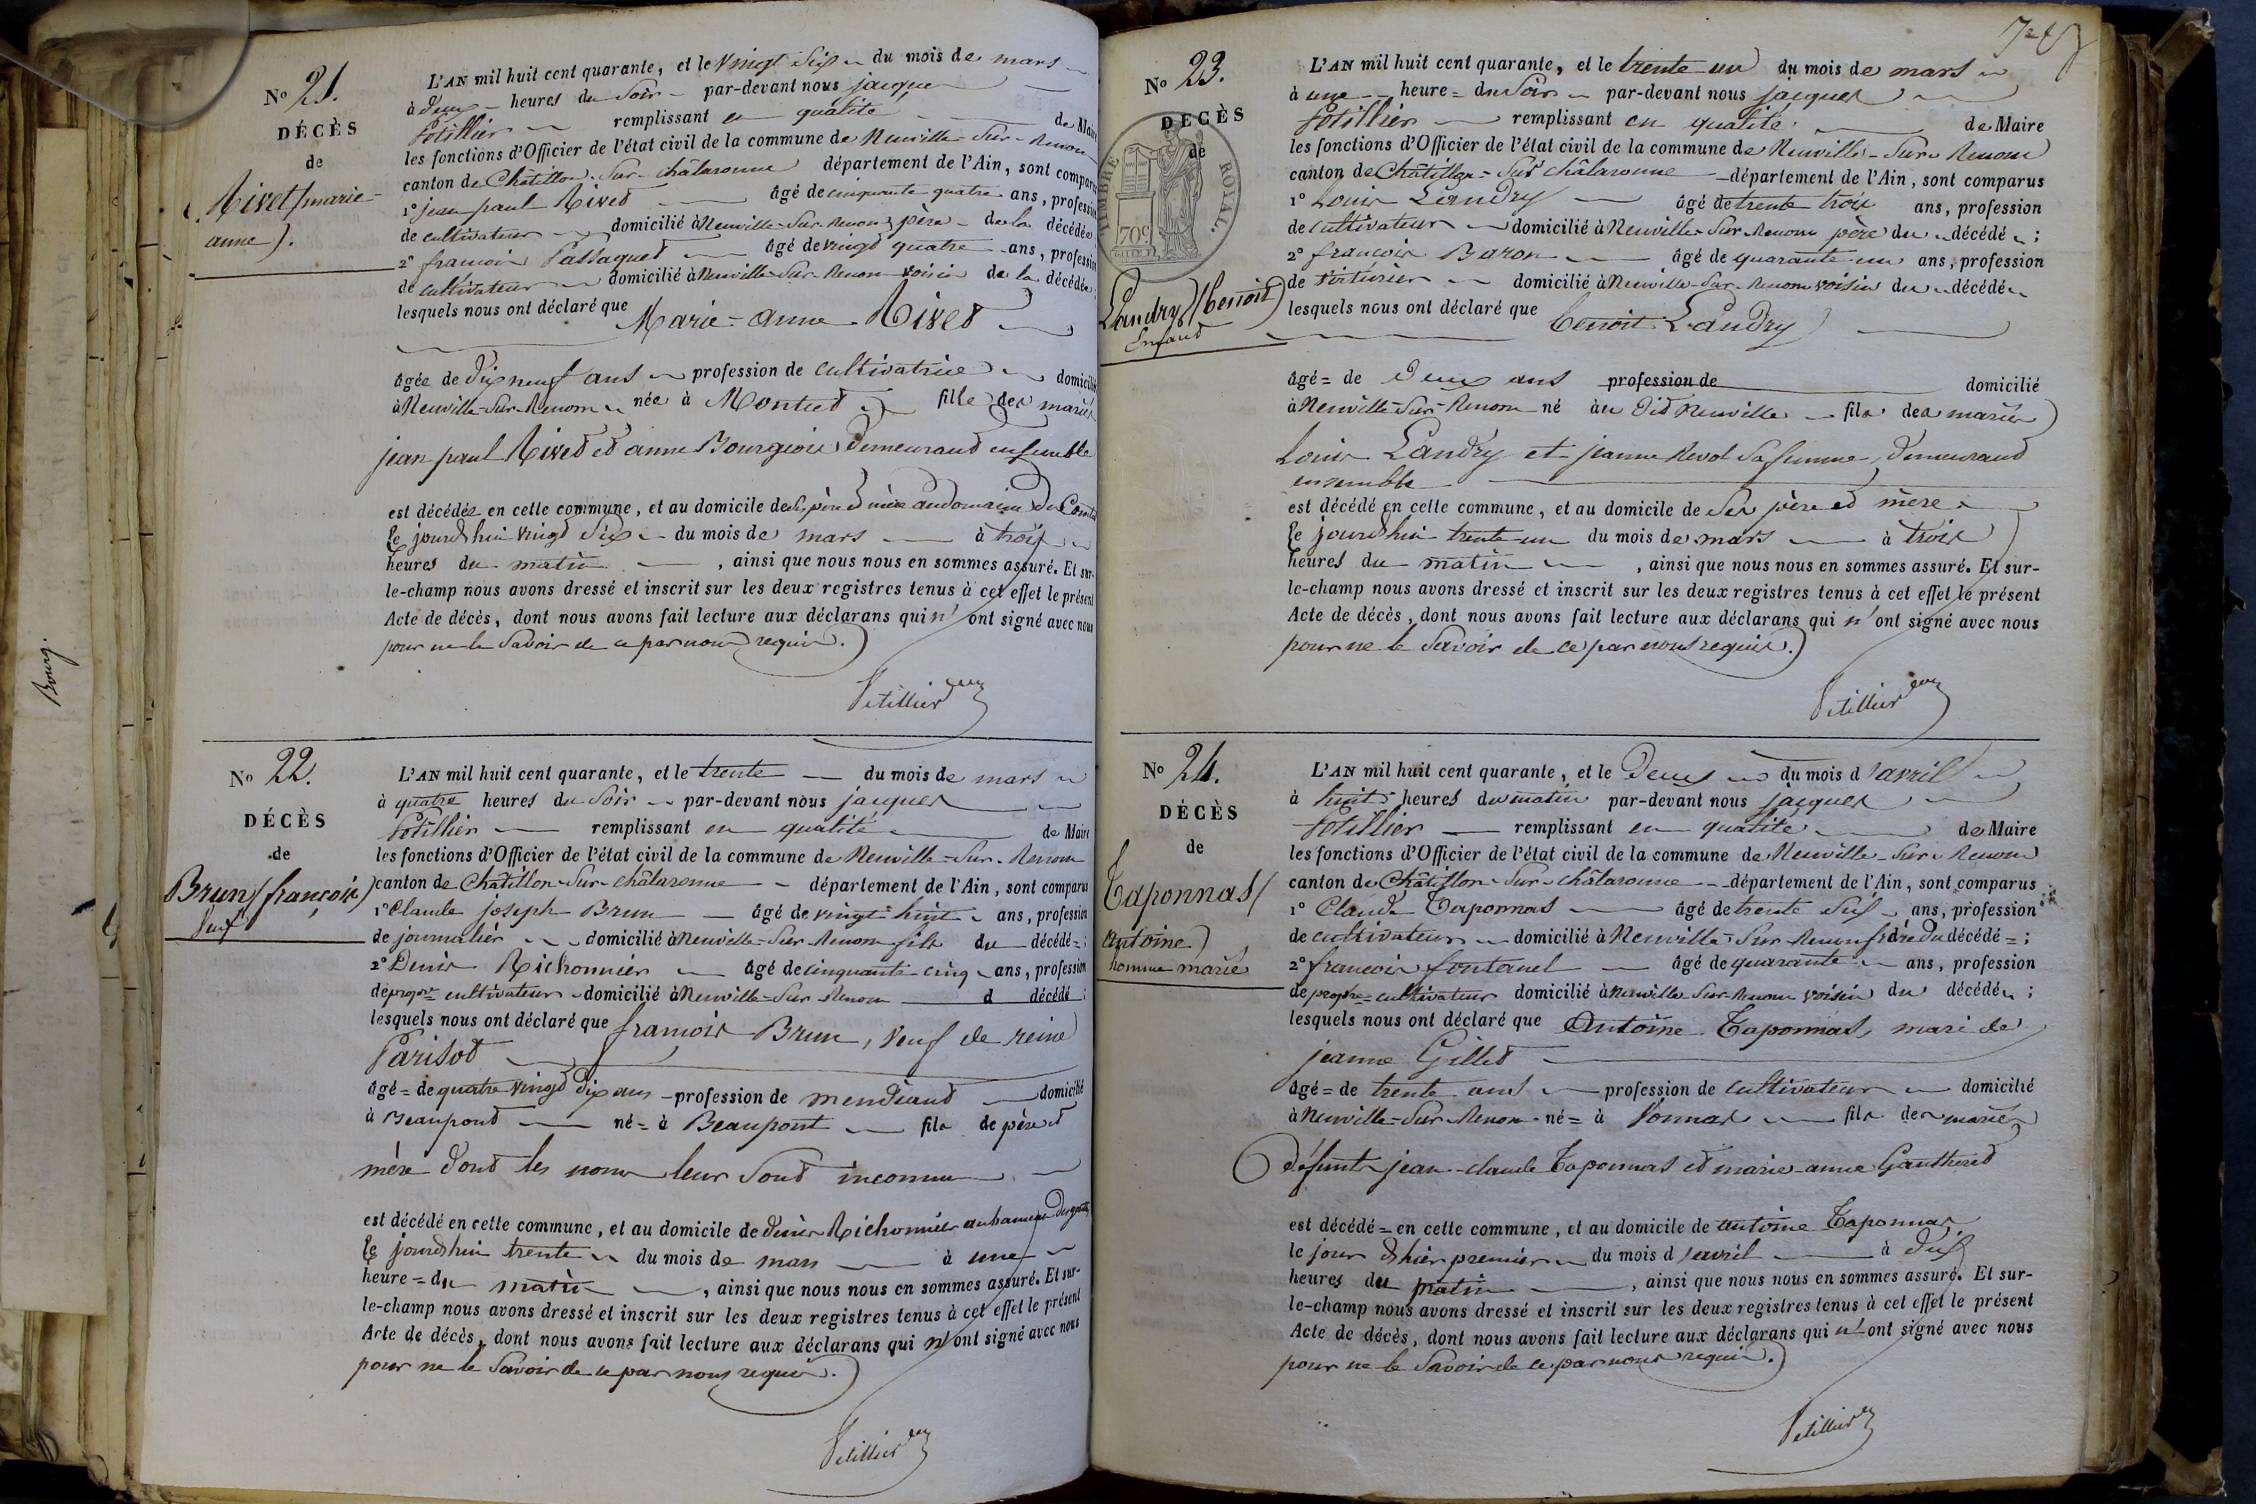 Bourg.
N° 21.
DÉCÈS
de
Rivet (marie-
anne).
L'AN mil huit cent quarante, et le vingt six du mois de mars
à deux heures du soir par-devant nous jacques
remplissant en qualité de Maire
les fonctions d'Officier de l'état civil de la commune de Neuville-Sur-Renom
canton de Châtillon-Sur-châlaronne département de l'Ain, sont comparus
1° jean paul Rivet âgé de cinquante quatre ans, profession
de cultivateur domicilié à Neuville-Sur-Renom père de la décédée
2° francois Passaquet âgé de vingt quatre ans, profession
de cultivateur domicilié à Neuville-Sur-Renom voisin de la décédée
lesquels nous ont déclaré que Marie-anne Rivet
âgée de dix neuf ans profession de cultivatrice domicilié
à Neuville-Sur-Renom née à Montcet fille des mariés
jean paul Rivet et anne Bourgeois demeurant ensemble
est décédée en cette commune, et au domicile de ses père et mère au domaine du
le jourdhui vingt six du mois de mars à trois
heures du matin, ainsi que nous nous en sommes assuré. Et sur-
le-champ nous avons dressé et inscrit sur les deux registres tenus à cet effet le présent
Acte de décès, dont nous avons fait lecture aux déclarans qui n'ont signé avec nous
pour ne le savoir de ce par nous requis.
N° 22.
DÉCÈS
de
Brun (françois)
Veuf
L'AN mil huit cent quarante, et le trente du mois de mars
à quatre heures du soir par-devant nous jacques
remplissant en qualité de Maire
les fonctions d'Officier de l'état civil de la commune de Neuville-Sur-Renom
canton de Châtillon-Sur-châlaronne département de l'Ain, sont comparus
1° Claude joseph Brun âgé de vingt huit ans, profession
de journalier domicilié à Neuville-Sur-Renom fils du décédé ;
2° Denis Richonnier âgé de cinquante cinq ans, profession
de propre cultivateur domicilié à Neuville-Sur-Renom d décédé ;
lesquels nous ont déclaré que francois Brun, veuf de reine
Parisot
âgé = de quatre vingt dix ans profession de mendiant domicilié
à Beaupont né = à Beaupont fils de père et
mère dont les noms leur sont inconnus
est décédé en cette commune, et au domicile de denis Richonnier au hameau
le jourdhui trente du mois de mars à une
heure = du matin, ainsi que nous nous en sommes assuré. Et sur-
le-champ nous avons dressé et inscrit sur les deux registres tenus à cet effet le présent
Acte de décès, dont nous avons fait lecture aux déclarans qui n'ont signé avec nous
pour ne le savoir de ce par nous requis.
N° 23.
DÉCÈS
de
TIMBRE ROYAL.
70c
Landry (benoit)
Enfant
L'AN mil huit cent quarante, et le trente un du mois de mars
à une heure = du soir par-devant nous jacques
remplissant en qualité de Maire
les fonctions d'Officier de l'état civil de la commune de Neuville-Sur-Renom
canton de Châtillon-Sur châlaronne département de l'Ain, sont comparus
1° Louis Landry âgé de trente trois ans, profession
de cultivateur domicilié à Neuville-Sur-Renom père du décédé ;
2° francois Baron âgé de quarante un ans, profession
de voiturier domicilié à Neuville-Sur-Renom voisin du décédé
lesquels nous ont déclaré que benoit Landry
âgé = de deux ans profession de domicilié
à Neuville-Sur-Renom né au dit Neuville fils des mariés
Louis Landry et jeanne Revol sa femme, demeurant
ensemble
est décédé en cette commune, et au domicile de ses père et mère
le jourdhui trente un du mois de mars à trois
heures du matin, ainsi que nous nous en sommes assuré. Et sur-
le-champ nous avons dressé et inscrit sur les deux registres tenus à cet effet le présent
Acte de décès, dont nous avons fait lecture aux déclarans qui n'ont signé avec nous
pour ne le savoir de ce par nous requis.
N° 24.
DÉCÈS
de
Taponnas (
antoine)
homme marié
L'AN mil huit cent quarante, et le deux du mois d'avril
à huit heures du matin par-devant nous jacques
remplissant en qualité de Maire
les fonctions d'Officier de l'état civil de la commune de Neuville-Sur-Renom
canton de Châtillon-Sur-châlaronne département de l'Ain, sont comparus
1° Claude Taponnas âgé de trente six ans, profession
de cultivateur domicilié à Neuville-Sur-Renom frère du décédé = ;
2° francois fontanel âgé de quarante ans, profession
de propre = cultivateur domicilié à Neuville-Sur-Renom voisin du décédé ;
lesquels nous ont déclaré que Antoine Taponnas, mari de
jeanne Gillet
âgé = de trente ans profession de cultivateur domicilié
à Neuville-Sur-Renom né = à Vonnas fils des mariés
défunts jean-claude Taponnas et marie-anne Gautheret
est décédé = en cette commune, et au domicile de antoine Taponnas
le jour d'hier premier du mois d'avril à dix
heures du matin, ainsi que nous nous en sommes assuré. Et sur-
le-champ nous avons dressé et inscrit sur les deux registres tenus à cet effet le présent
Acte de décès, dont nous avons fait lecture aux déclarans qui n'ont signé avec nous
pour ne le savoir de ce par nous requis.